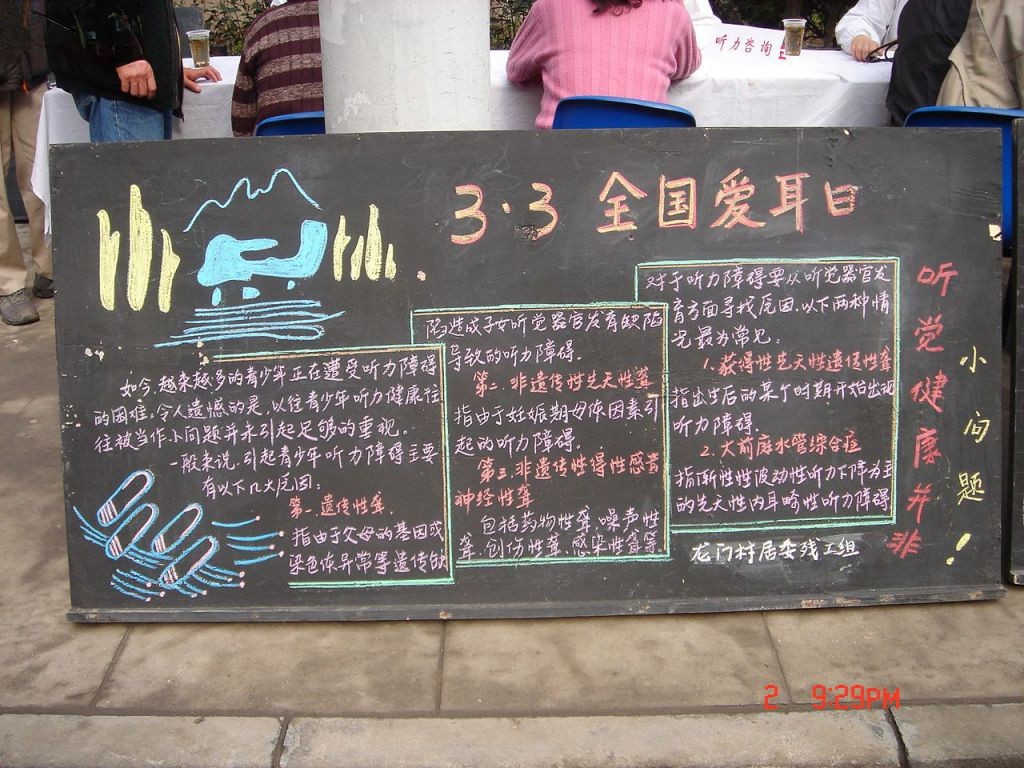 听力咨询
3·3 全国爱耳日
如今,越来越多的青少年正在遭受听力障碍
的困难,令人遗憾的是,以往青少年听力健康往
往被当作小问题并未引起足够的重视。
一般来说,引起青少年听力障碍主要
有以下几大原因:
第一.遗传性聋
指由于父母的基因或
染色体异常等遗传的
陷造成子女听觉器官发育缺陷
导致的听力障碍.
第二.非遗传性先天性聋
指由于妊娠期母体因素引
起的听力障碍.
第三.非遗传性得性感音
神经性聋
包括药物性聋.噪声性
聋.创伤性聋.感染性聋等
对于听力障碍要从听觉器官发
育方面寻找原因.以下两种情
况最为常见:
1.获得性先天性遗传性聋
指出生后的某个时期开始出现
听力障碍.
2.大前庭水管综合症
指渐性性波动性听力下降为主
的先天性内耳畸性听力障碍
龙门村居委线工组
听觉健康并非
小问题!
2 9:29PM